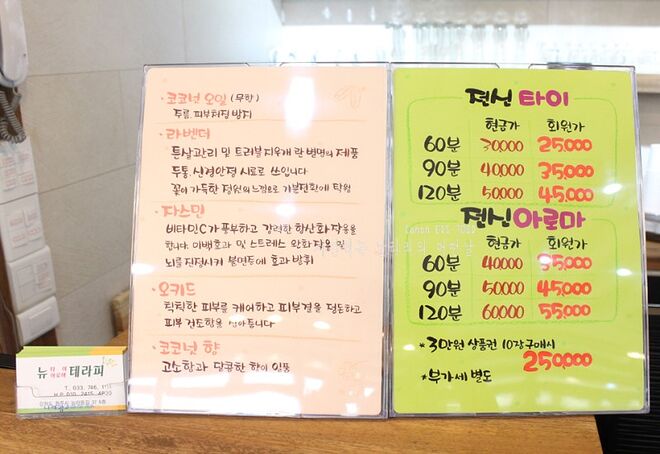 · 코코넛 오일 (무향)
주름, 피부처짐 방지
· 라벤더
튼살관리 및 트러블 지우개란 별명의 제품
두통 신경안정 시로로 쓰입니다
꽃이 가득한 정원의 느낌으로 기분전환에 탁월
· 자스민
비타민C가 풍부하고 강력한 항산화 작용을
합니다. 미백효과 및 스트레스 완화 작용 및
뇌를 진정시켜 불면증에 효과 발휘
· 오키드
칙칙한 피부를 케어하고 피부결을 정돈하고
피부 건조함을 잡아줍니다
· 코코넛 향
고소함과 달콤한 향이 일품
전신 타이
현금가 회원가
60분 30,000 25,000
90분 40,000 35,000
120분 50,000 45,000
전신 아로마
Canon EOS 700D
현금가 회원가
60분 40,000 35,000
90분 50,000 45,000
120분 60,000 55,000
* 3만원 상품권 10장 구매시
250,000
* 부가세 별도
뉴 타이 아로마 테라피